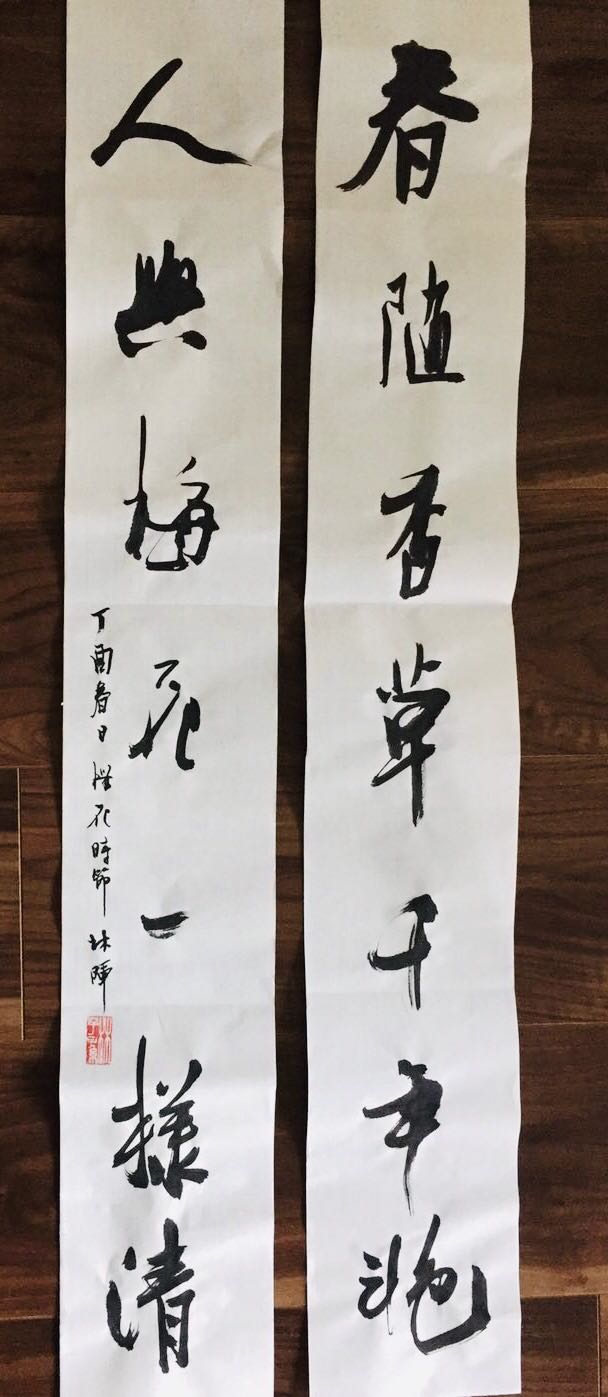 春随香草千年艳
人與梅花一樣清
丁酉春日櫻花時節 林陣